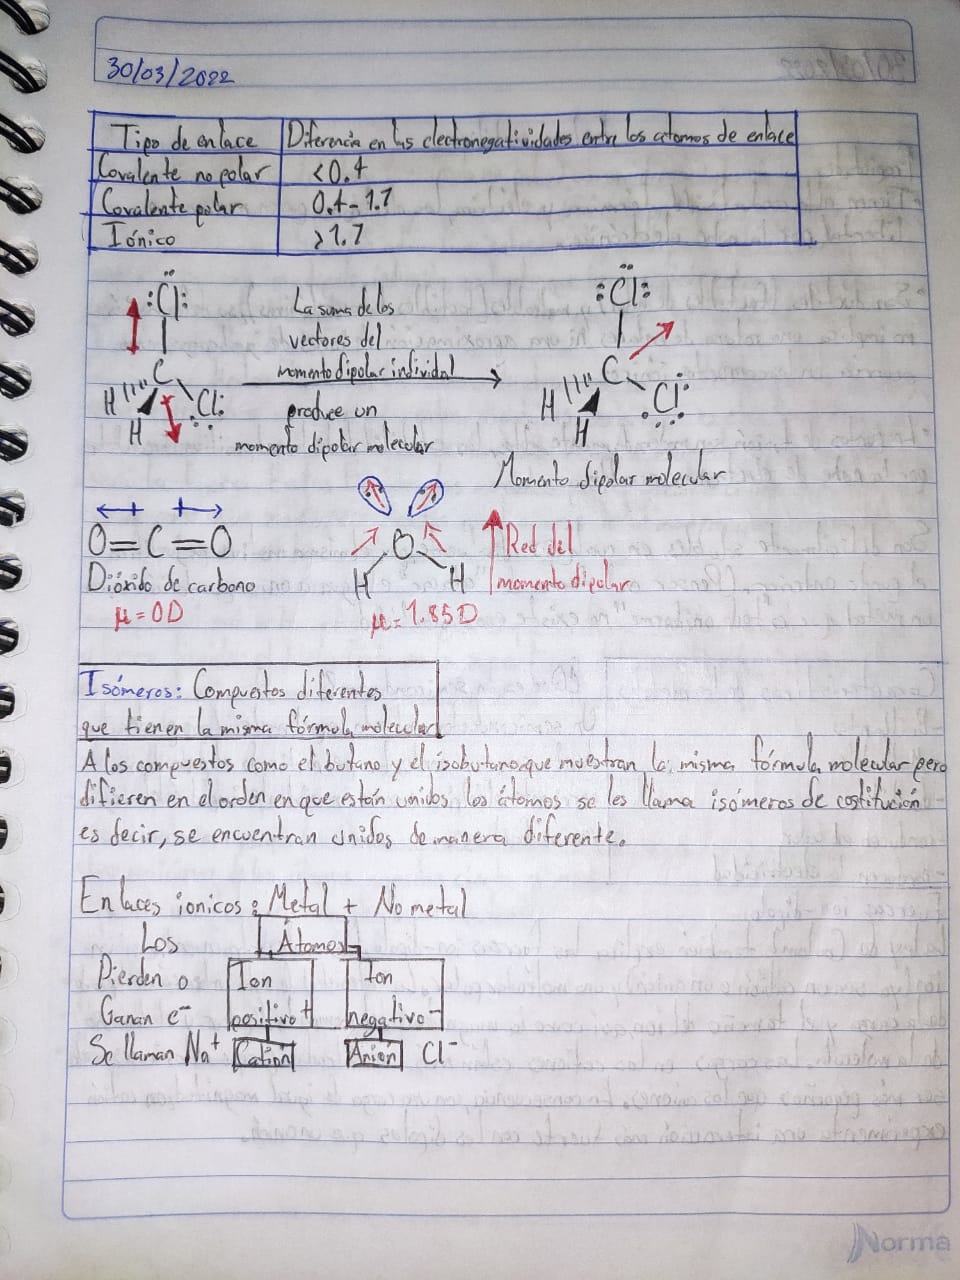 30/03/2022
Tipo de enlace Diferencia en las electronegatividades entre los atomos de enlace
Covalente no polar <0.4
Covalente polar 0.4-1.7
Iónico >1.7
:Cl:
La suma de los
vectores del
momento dipolar individal
produce un
momento dipolar molecular
C
H
H
Cl:
:Cl:
C
H
H
Cl:
Momento dipolar molecular
O=C=O
Dióxido de carbono
μ=0D
O
H H
μ=1.85D
Red del
momento dipolar
Isómeros: Compuestos diferentes
que tienen la misma fórmula molecular
A los compuestos como el butano y el isobutano que muestran la misma fórmula molecular pero
difieren en el orden en que están unidos los átomos se les llama isómeros de costitución
es decir, se encuentran unidos de manera diferente.
Enlaces ionicos: Metal + No metal
Los Átomos
Pierden o Ion Ion
Ganan e⁻ positivo+ negativo-
Se llaman Na⁺ Catión Anión Cl⁻
Norma